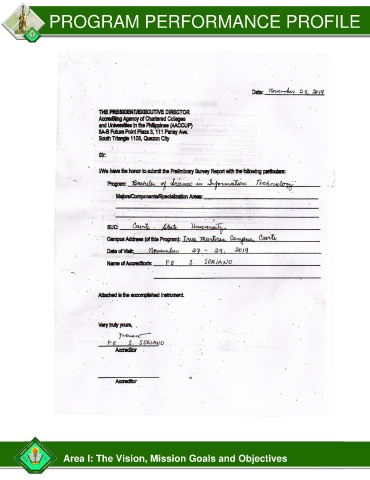 PROGRAM PERFORMANCE PROFILE
Date: November 28, 2019
THE PRESIDENT/EXECUTIVE DIRECTOR
Accrediting Agency of Chartered Colleges
and Universities in the Philippines (AACCUP)
5A-B Future Point Plaza 3, 111 Panay Ave.
South Triangle 1103, Quezon City
Sir:
I/We have the honor to submit the Preliminary Survey Report with the following particulars:
Program: Bachelor of Science in Information Technology
Majors/Components/Specialization Areas:
SUC: Cavite State University
Campus Address (of this Program): Trece Martires Campus, Cavite
Date of Visit: November 27 - 29, 2019
Name of Accreditor/s: FE S. SORIANO
Attached is the accomplished instrument.
Very truly yours,
FE S. SORIANO
Accreditor
Accreditor
Area I: The Vision, Mission Goals and Objectives